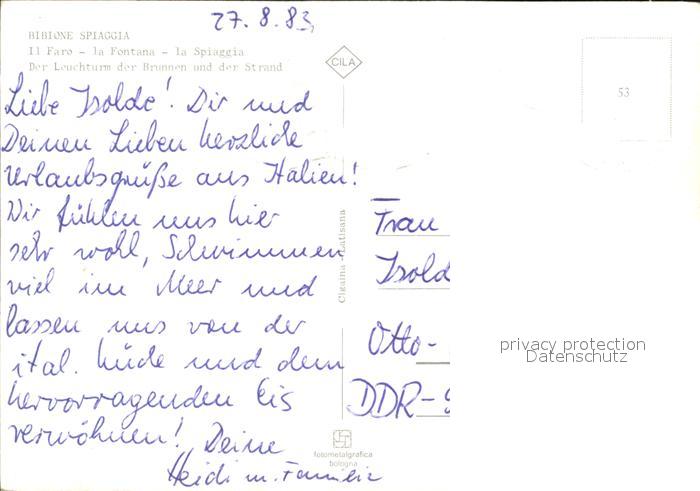 27.8.83,
BIBIONE SPIAGGIA
Il Faro - la Fontana - la Spiaggia
Der Leuchturm der Brunnen und der Strand
CILA
53
Liebe Isolde! Dir und
Deinen Lieben herzliche
Urlaubsgrüße aus Italien!
Wir fühlen uns hier
sehr wohl, Schwimmen
viel im Meer und
lassen uns von der
ital. Küche und dem
hervorragenden Eis
verwöhnen! Deine
Heidi m. Familie
Cigaina - Latisana
Frau
Isold
Otto-
DDR-9
privacy protection
Datenschutz
fotometalgrafica
bologna